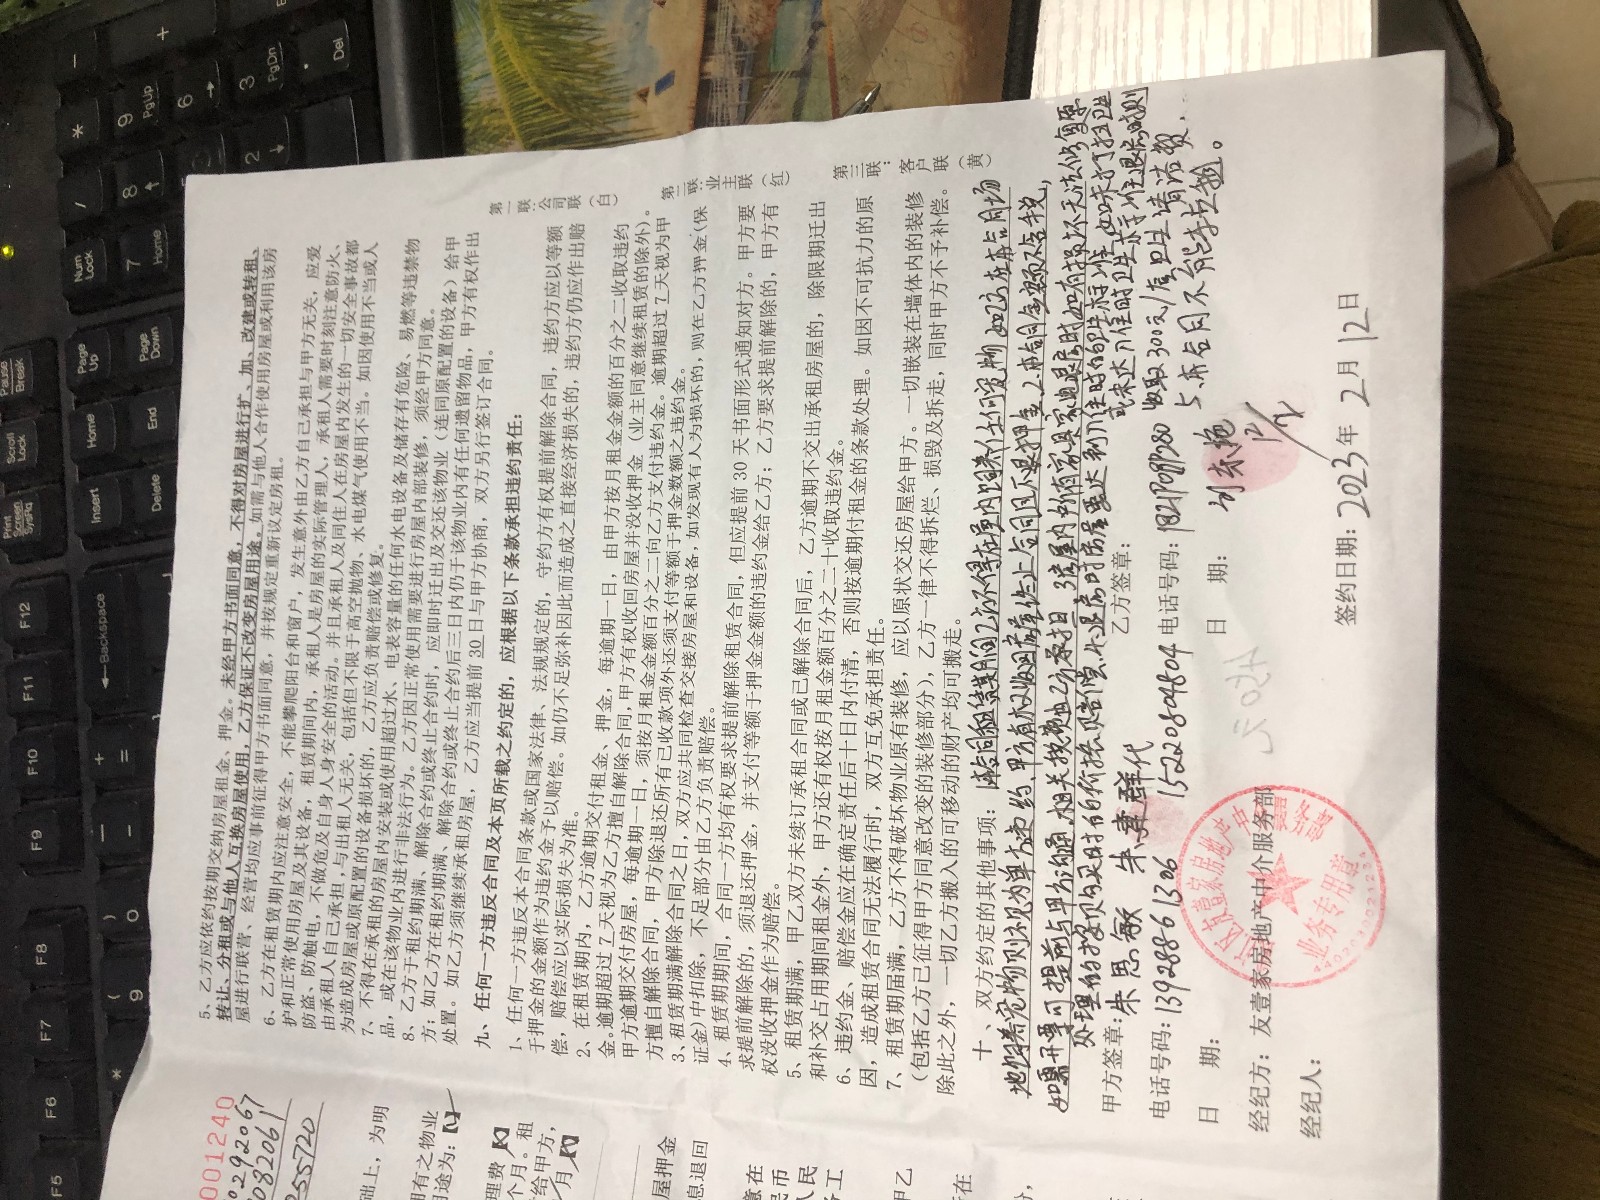 5、乙方应依约按期交纳房屋租金、押金。未经甲方书面同意，不得对房屋进行扩、加、改建或转租、
转让、分租或与他人互换房屋使用，乙方保证不改变房屋用途。如需与他人合作使用房屋或利用该房
屋进行联营、经营均应事前征得甲方书面同意，并按规定重新议定房租。
6、乙方在租赁期内应注意安全，不能攀爬阳台和窗户，发生意外由乙方自己承担与甲方无关，应爱
护和正常使用房屋及其设备，租赁期间内，承租人是房屋的实际管理人，承租人需要时刻注意防火、
防盗、防触电，不做危及自身人身安全的活动。并且承租人及同住人在房屋内发生的一切安全事故都
由承租人自己承担，与出租人无关，包括但不限于高空抛物、水电煤气使用不当。如因使用不当或人
为造成房屋或原配置的设备损坏的，乙方应负责赔偿或修复。
7、不得在承租的房屋内安装或使用超过水、电表容量的任何水电设备及储存有危险、易燃等违禁物
品，或在该物业内进行非法行为。乙方因正常使用需要进行房屋内部装修，须经甲方同意。
8、乙方于租约期满、解除合约或终止合约时，应即时迁出及交还该物业（连同原配置的设备）给甲
方；如乙方在租约期满、解除合约或终止合约后三日内仍于该物业内有任何遗留物品，甲方有权作出
处置。如乙方须继续承租房屋，乙方应当提前 30 日与甲方协商，双方另行签订合同。
九、任何一方违反合同及本页所载之约定的，应根据以下条款承担违约责任：
1、任何一方违反本合同条款或国家法律、法规规定的，守约方有权提前解除合同，违约方应以等额
于押金的金额作为违约金予以赔偿。如仍不足弥补因此而造成之直接经济损失的，违约方仍应作出赔
偿，赔偿应以实际损失为准。
2、在租赁期内，乙方逾期交付租金、押金，每逾期一日，由甲方按月租金金额的百分之二收取违约
金。逾期超过 7 天视为乙方擅自解除合同，甲方有权收回房屋并没收押金（业主同意继续租赁的除外）。
甲方逾期交付房屋，每逾期一日，须按月租金金额百分之二向乙方支付违约金。逾期超过 7 天视为甲
方擅自解除合同，甲方除退还所有已收款项外还须支付等额于押金数额之违约金。
3、租赁期满解除合同之日，双方应共同检查交接房屋和设备，如发现有人为损坏的，则在乙方押金（保
证金）中扣除，不足部分由乙方负责赔偿。
4、租赁期间，合同一方均有权要求提前解除租赁合同，但应提前 30 天书面形式通知对方。甲方要
求提前解除的，须退还押金，并支付等额于押金金额的违约金给乙方；乙方要求提前解除的，甲方有
权没收押金作为赔偿。
5、租赁期满，甲乙双方未续订承租合同或已解除合同后，乙方逾期不交出承租房屋的，除限期迁出
和补交占用期间租金外，甲方还有权按月租金额百分之二十收取违约金。
6、违约金、赔偿金应在确定责任后十日内付清，否则按逾期付租金的条款处理。如因不可抗力的原
因，造成租赁合同无法履行时，双方互免承担责任。
7、租赁期届满，乙方不得破坏物业原有装修，应以原状交还房屋给甲方。一切嵌装在墙体内的装修
（包括乙方已征得甲方同意改变的装修部分），乙方一律不得拆烂、损毁及拆走，同时甲方不予补偿。
除此之外，一切乙方搬入的可移动的财产均可搬走。
第一联：公司联（白）
第二联：业主联（红）
第三联：客户联（黄）
十、双方约定的其他事项：1.本合同租赁期间乙方不得在屋内饲养任何宠物
地饲养宠物则视为单方违约、甲方有权收回房屋终止合同且不退押金，2.本合同金额不含税，
如需开票可提前与甲方沟通，相关税费由乙方承担 3.屋内所有家具家电退房时如有损坏无法修复
处理的按购买时的价格赔偿 退房时房屋要达到入住时的卫生标准，如未打扫卫生
或未达入住时卫生标准退房时则
收取300元/套卫生清洁费，
5.本合同不能
甲方签章：朱思敏 朱 群代
乙方签章：刘东艳
电话号码：13928861306 15220804804
电话号码：
日 期：
日 期：
经纪方：友壹家房地产中介服务部
业务专用章
经纪人：
签约日期：2023年 2月 12日
001240
础上，为明
拥有之物业
用途为：
理费
个月。租
给甲方，
月
屋押金
息退回